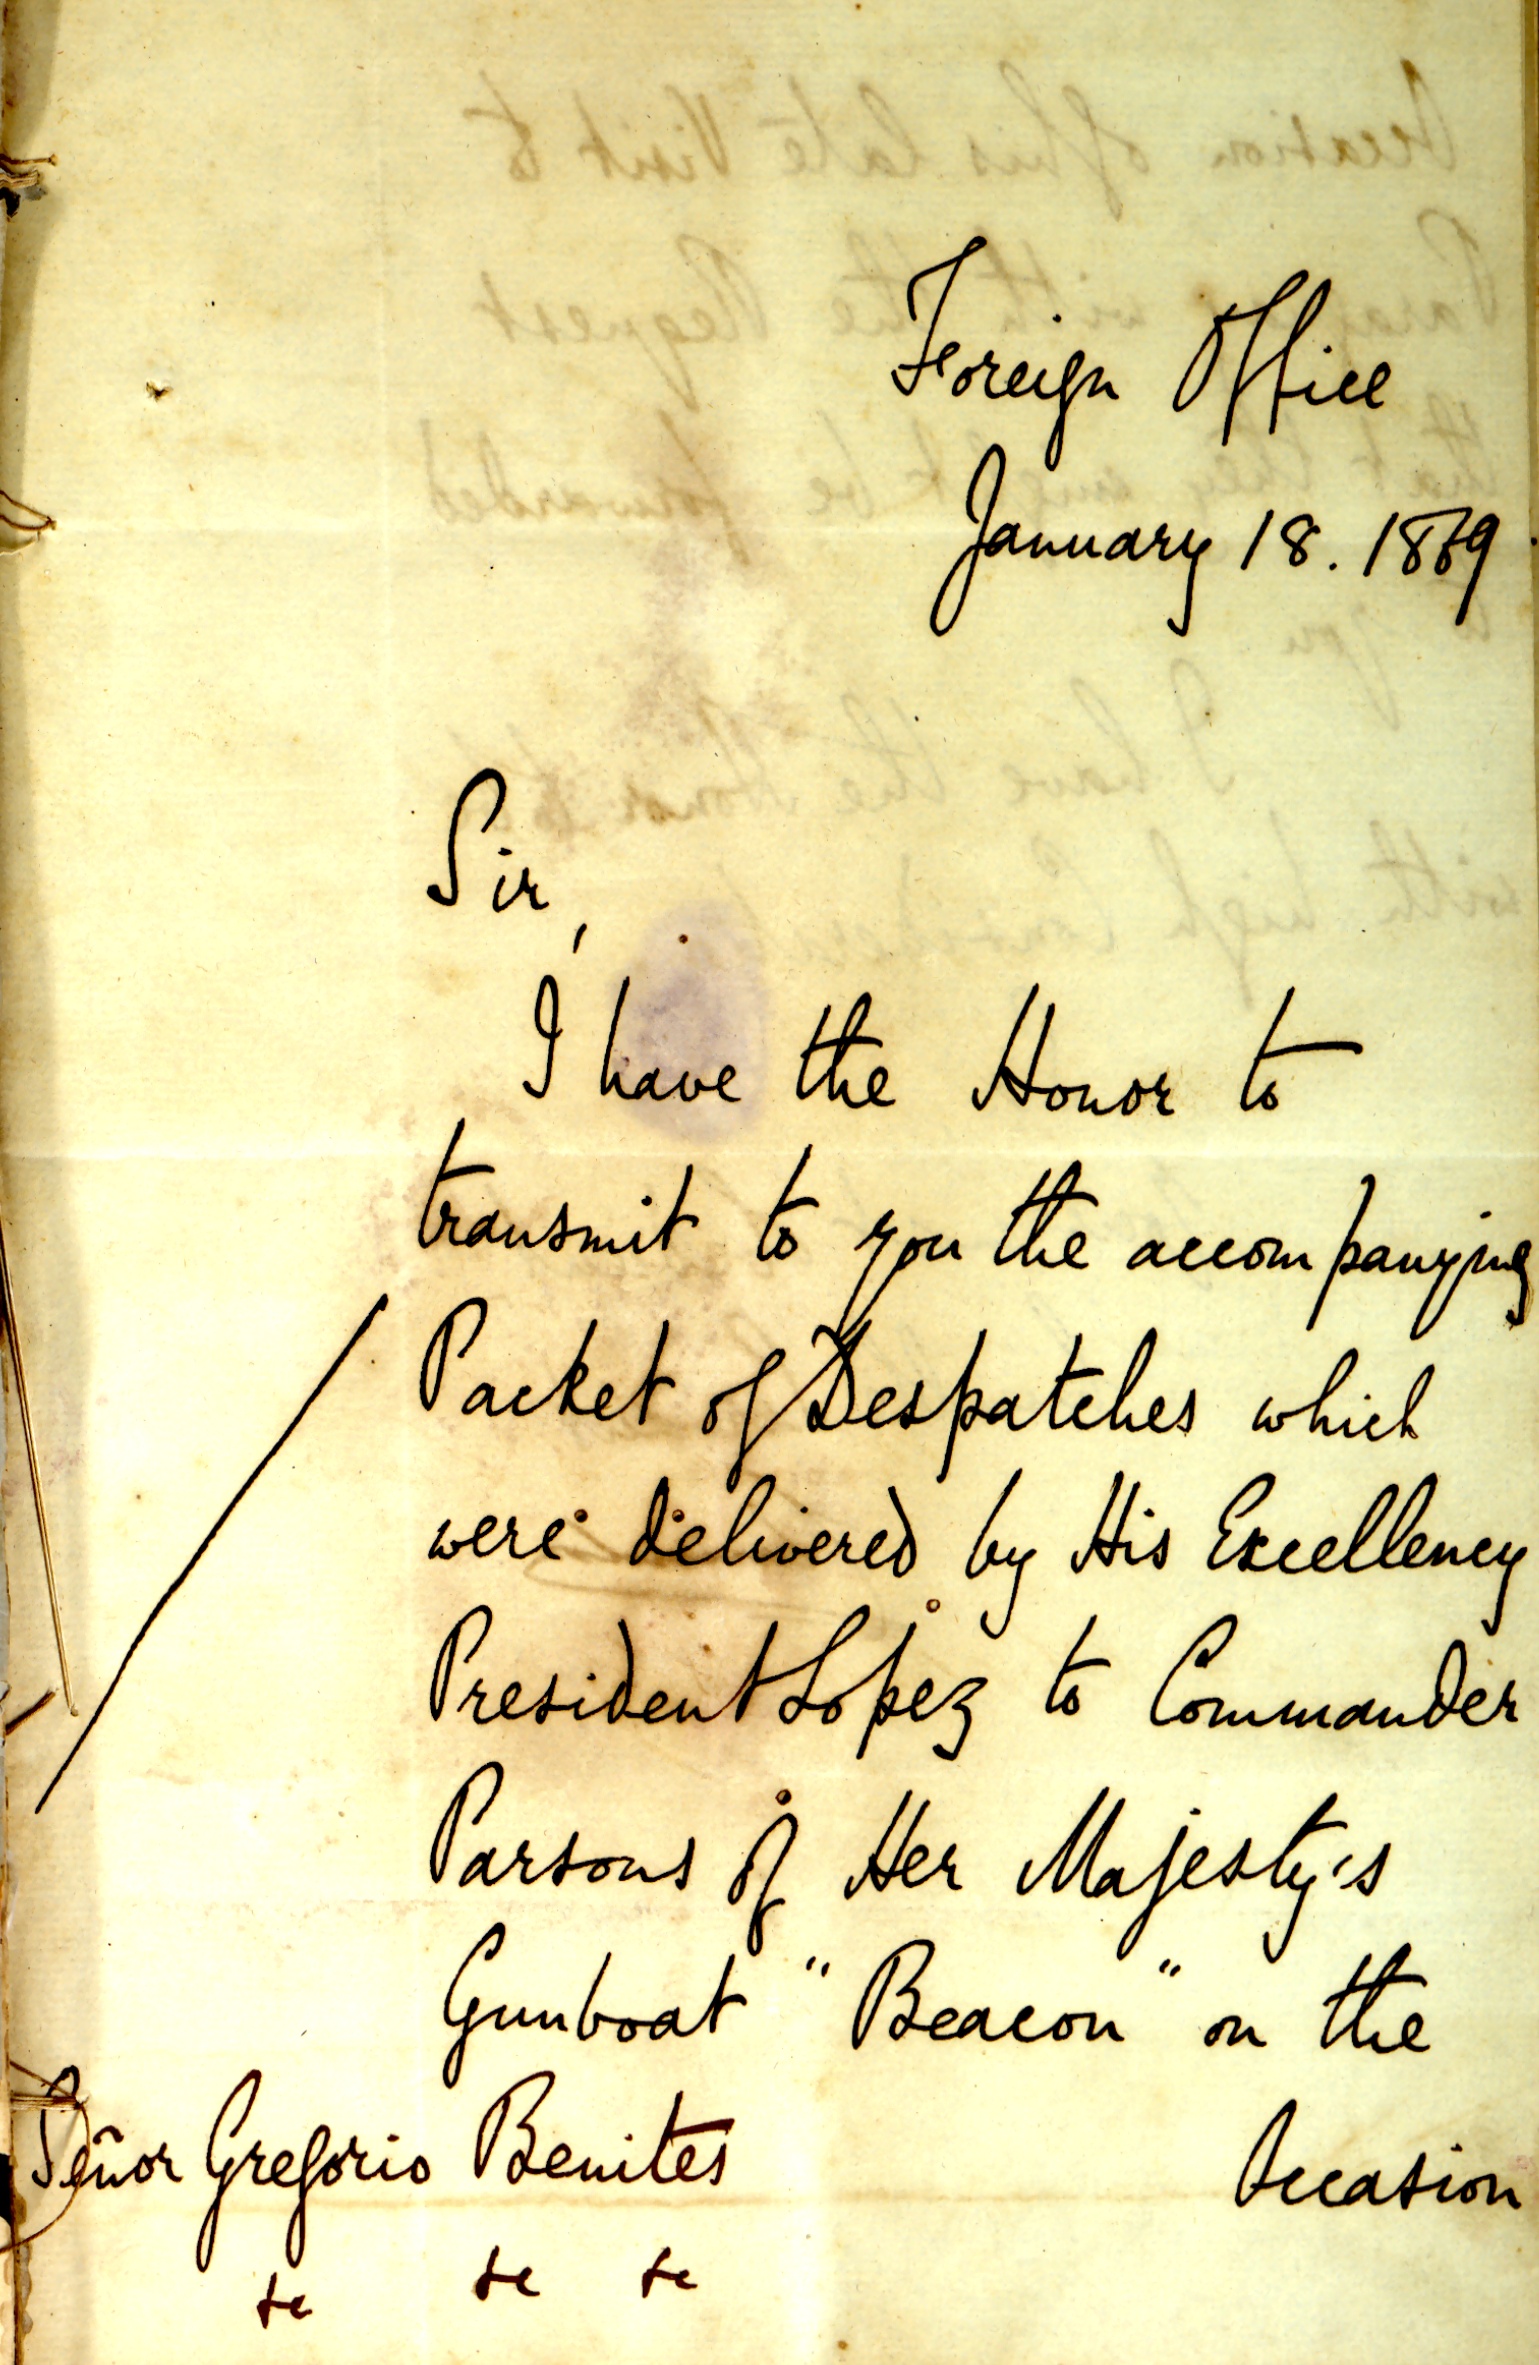 Foreign Office
January 18. 1869
Sir,
I have the Honor to
transmit to you the accompanying
Packet of Despatches which
were delivered by His Excellency
President Lopez to Commander
Parsons of Her Majesty's
Gunboat "Beacon" on the
Occasion
Señor Gregorio Benites
&c &c &c